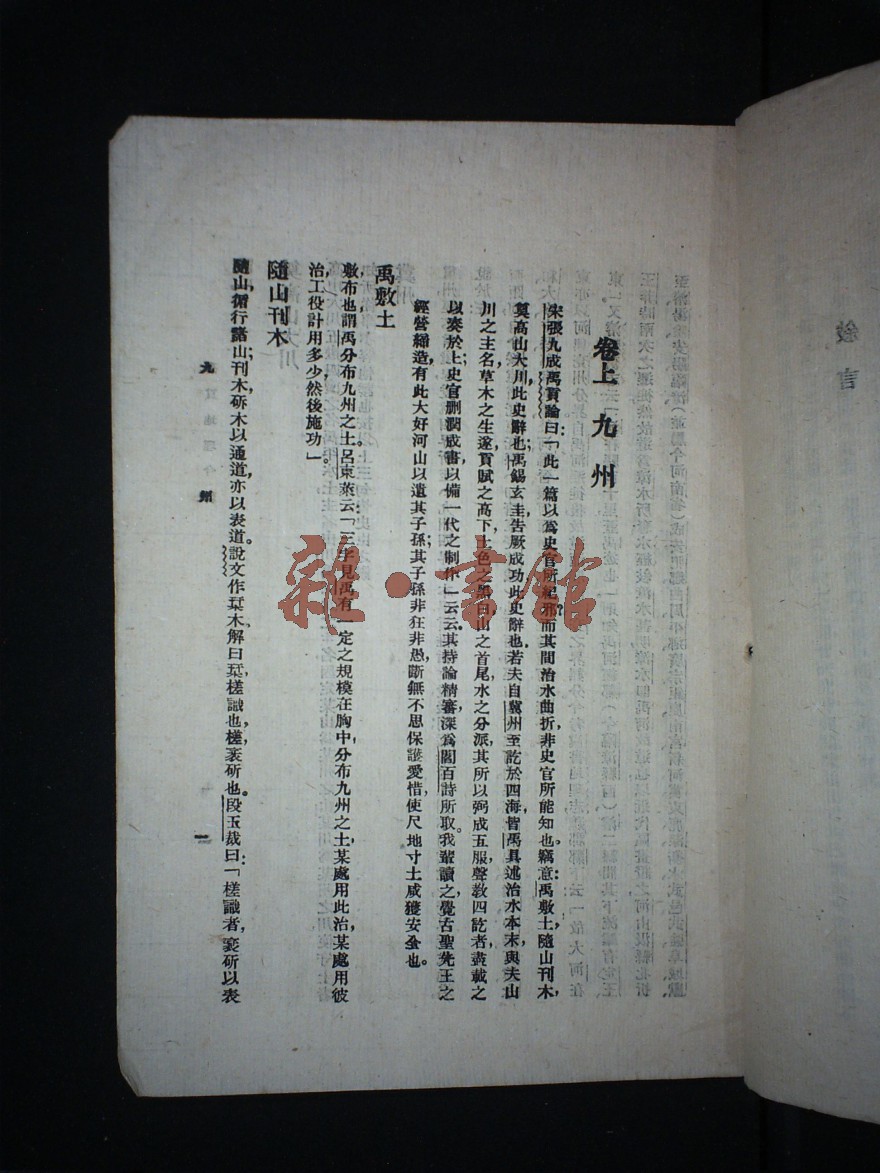 卷上 九州
宋張九成禹貢論曰：「此一篇以爲史官所紀邪？而其間治水曲折，非史官所能知也。竊意：禹敷土，隨山刊木，
奠高山大川，此史辭也；禹錫玄圭，告厥成功，此史辭也。若夫自冀州至訖於四海，皆禹具述治水本末，與夫山
川之主名，草木之生遂，貢賦之高下，土色之黑白，山之首尾，水之分派，其所以弼成五服，聲教四訖者，盡載之
以奏於上，史官刪潤成書，以備一代之制作」云云。其持論精審，深爲閻百詩所取。我輩讀之，覺古聖先王之
經營締造，有此大好河山，以遺其子孫；其子孫非狂非愚，斷無不思保護愛惜，使尺地寸土咸獲安全也。
禹敷土
敷，布也，謂禹分布九州之土。呂東萊云：「三字見禹有一定之規模在胸中，分布九州之土，某處用此治，某處用彼
治，工役計用多少，然後施功」。
隨山刊木
隨山，循行諸山；刊木，斫木以通道，亦以表道。說文作栞木，解曰栞，槎識也，槎，衺斫也。段玉裁曰：「槎識者，衺斫以表
九州
一
敘言
雜·書館